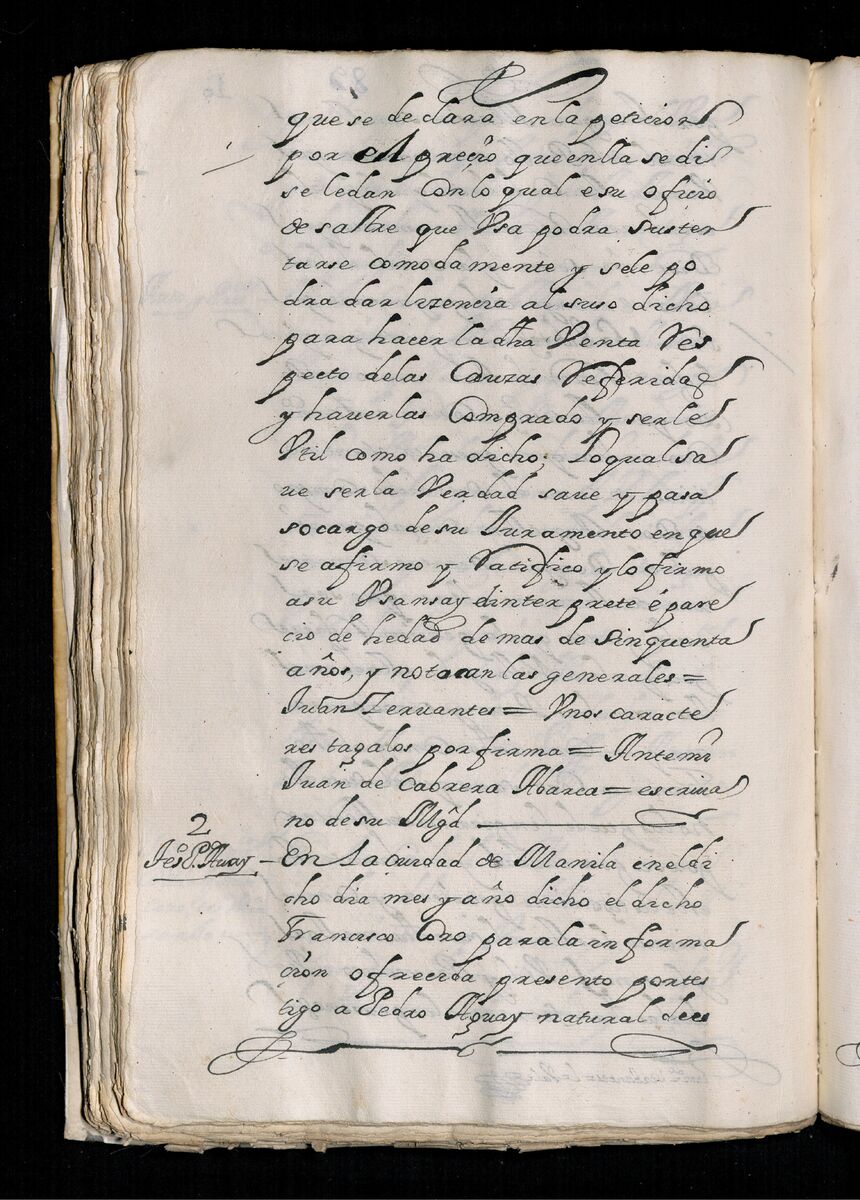 que se declara en la peticion
por el preçio que en lla se di
se le dan Con lo qual e su oficio
de sastre que Vsa podra susten
tarse comodamente y se le po
dra dar lizençia al suso dicho
para hacer la dha Venta Res
pecto de las Cauzas Referidas
y hauerlas Comprado y serle
Vtil como ha dicho; Lo qual sa
ue ser la Verdad saue y pasa
so cargo de su Juramento en que
se afirmo y Ratifico y lo firmo
a su Vsansa y el interprete é pare
cio de hedad de mas de sinquenta
años, y no tocan las generales =
Juan Zervantes = Vnos caracte
res tagalos por firma = Antemi
Juan de Cabrera Abarca = escriua
no de su Mgd
2
tº P. Auay – En La ciudad de Manila en el di
cho dia mes y año dicho el dicho
Francisco Coro para la informa
çion ofrecida presento por tes
tigo a Pedro Aguay natural de